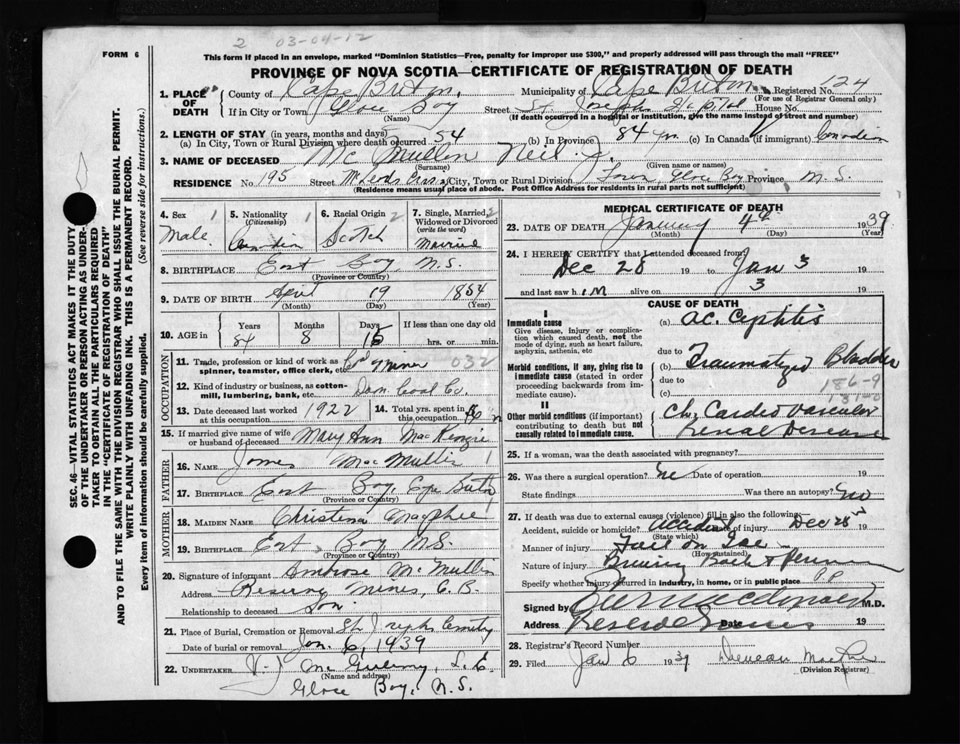 2 03-04-12
FORM 6
This form if placed in an envelope, marked "Dominion Statistics—Free, penalty for improper use $300," and properly addressed will pass through the mail "FREE"
PROVINCE OF NOVA SCOTIA—CERTIFICATE OF REGISTRATION OF DEATH
SEC. 46—VITAL STATISTICS ACT MAKES IT THE DUTY
OF THE UNDERTAKER OR PERSON ACTING AS UNDER-
TAKER TO OBTAIN ALL THE PARTICULARS REQUIRED
IN THE "CERTIFICATE OF REGISTRATION OF DEATH"
AND TO FILE THE SAME WITH THE DIVISION REGISTRAR WHO SHALL ISSUE THE BURIAL PERMIT.
WRITE PLAINLY WITH UNFADING INK. THIS IS A PERMANENT RECORD.
Every item of information should be carefully supplied. (See reverse side for instructions.)
1. PLACE OF DEATH County of Cape Breton. Municipality of Cape Breton Registered No. 124
(For use of Registrar General only)
If in City or Town Glace Bay Street St Josephs Hospital House No.
(Name) (If death occurred in a hospital or institution, give the name instead of street and number)
2. LENGTH OF STAY (in years, months and days)
(a) In City, Town or Rural Division where death occurred 54 (b) In Province 84 yrs (c) In Canada (if immigrant) Canadian
3. NAME OF DECEASED Mc Mullin Neil J.
(Surname) (Given name or names)
RESIDENCE No. 195 Street McLeods Cross City, Town or Rural Division Town Glace Bay Province N.S.
(Residence means usual place of abode. Post Office Address for residents in rural parts not sufficient)
4. Sex 1 5. Nationality 1 6. Racial Origin 2 7. Single, Married, 2
(Citizenship) Widowed or Divorced
(write the word)
Male Canadian Scotch Married
8. BIRTHPLACE East Bay, N.S.
(Province or Country)
9. DATE OF BIRTH April 19 1854
(Month) (Day) (Year)
10. AGE in Years Months Days If less than one day
84 8 15 hrs. or min.
OCCUPATION
11. Trade, profession or kind of work as spinner, teamster, office clerk, etc. Miner 032
12. Kind of industry or business, as cotton-mill, lumbering, bank, etc. Dom Coal Co.
13. Date deceased last worked at this occupation 1922 14. Total yrs. spent in this occupation
15. If married give name of wife or husband of deceased Mary Ann MacKenzie
FATHER
16. NAME James McMullin 1
17. BIRTHPLACE East Bay, Cape Breton
(Province or Country)
MOTHER
18. MAIDEN NAME Christina Macphee
19. BIRTHPLACE East Bay N.S.
(Province or Country)
20. Signature of informant Ambrose McMullin
Address Reserve Mines, C.B.
Relationship to deceased Son
21. Place of Burial, Cremation or Removal St Josephs Cemetery
Date of burial or removal Jan. 6, 1939
22. UNDERTAKER V. J. L.E.
(Name and address)
Glace Bay, N.S.
MEDICAL CERTIFICATE OF DEATH
23. DATE OF DEATH January 4th 1939
(Month) (Day) (Year)
24. I HEREBY CERTIFY that I attended deceased from
Dec 28 19 to Jan 3 19
and last saw him alive on 3 19
CAUSE OF DEATH
I
Immediate cause (a) ac.
Give disease, injury or complication which caused death, not the mode of dying, such as heart failure, asphyxia, asthenia, etc
due to
Morbid conditions, if any, giving rise to immediate cause (stated in order proceeding backwards from immediate cause). (b) Traumatized Bladder
due to 186-9
(c) 131-0
II
Other morbid conditions (if important) contributing to death but not causally related to immediate cause. Chr Cardio Vascular
Renal Disease
25. If a woman, was the death associated with pregnancy?
26. Was there a surgical operation? no Date of operation 19
State findings Was there an autopsy? no
27. If death was due to external causes (violence) fill in also the following:—
Accident, suicide or homicide? Accident Date of injury Dec 28 19
(State which)
Manner of injury Fall on Ice
(How sustained)
Nature of injury Bruising Back &
Specify whether injury occurred in industry, in home, or in public place P.P.
Signed by MacDonald M.D.
Address Reserve Mines Date 19
28. Registrar's Record Number
29. Filed Jan 6 1939 Duncan
(Division Registrar)